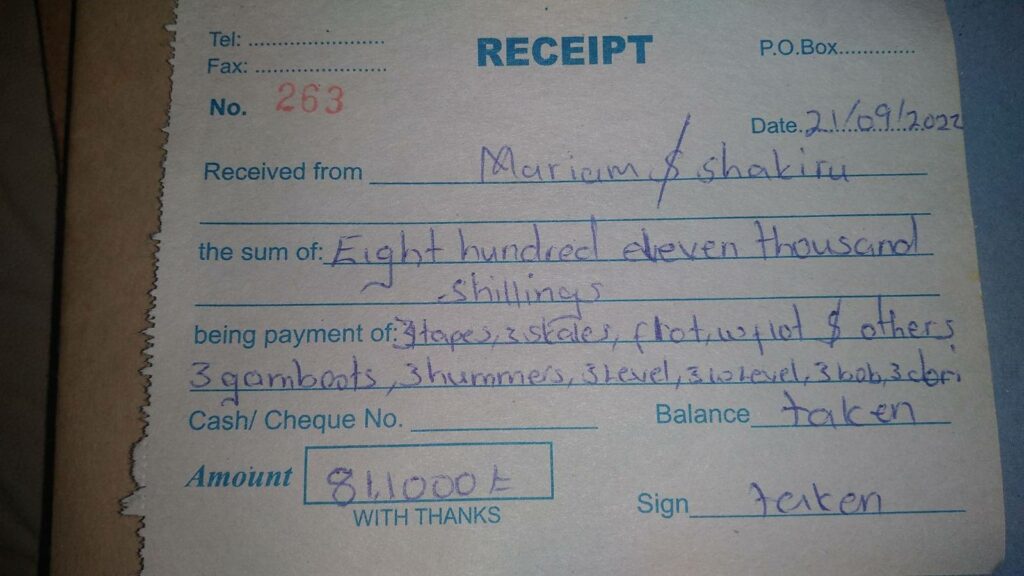 Tel: ........................
RECEIPT
P.O.Box.............
Fax: .......................
No. 263
Date. 21/09/2022
Received from Mariam & shakiru
the sum of: Eight hundred eleven thousand
shillings
being payment of: 3tapes, 3 scales, flot, wflot & others
3 gamboots, 3 hummers, 3 Level, 3 w Level, 3 bob, 3
Cash/ Cheque No.
Balance taken
Amount 811000
WITH THANKS
Sign taken